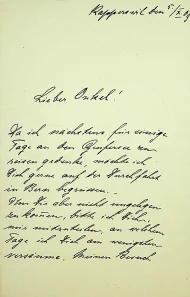 Rapperswil den 5/X.
Lieber Onkel!
Da ich nächstens für einige
Tage an den Genfersee zu
reisen gedenke, möchte ich
Dich gerne auf der Durchfahrt
in Bern begrüssen.
Um Dir aber nicht ungelegen
zu kommen, bitte ich Dich,
mir mitzuteilen, an welchem
Tage ich Dich am wenigsten
versäume. Meinen Besuch